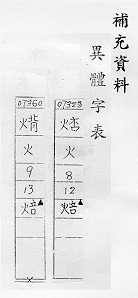 補充資料
異體字表
07323
火
8
12
焙▲
07360
火
9
13
焙▲